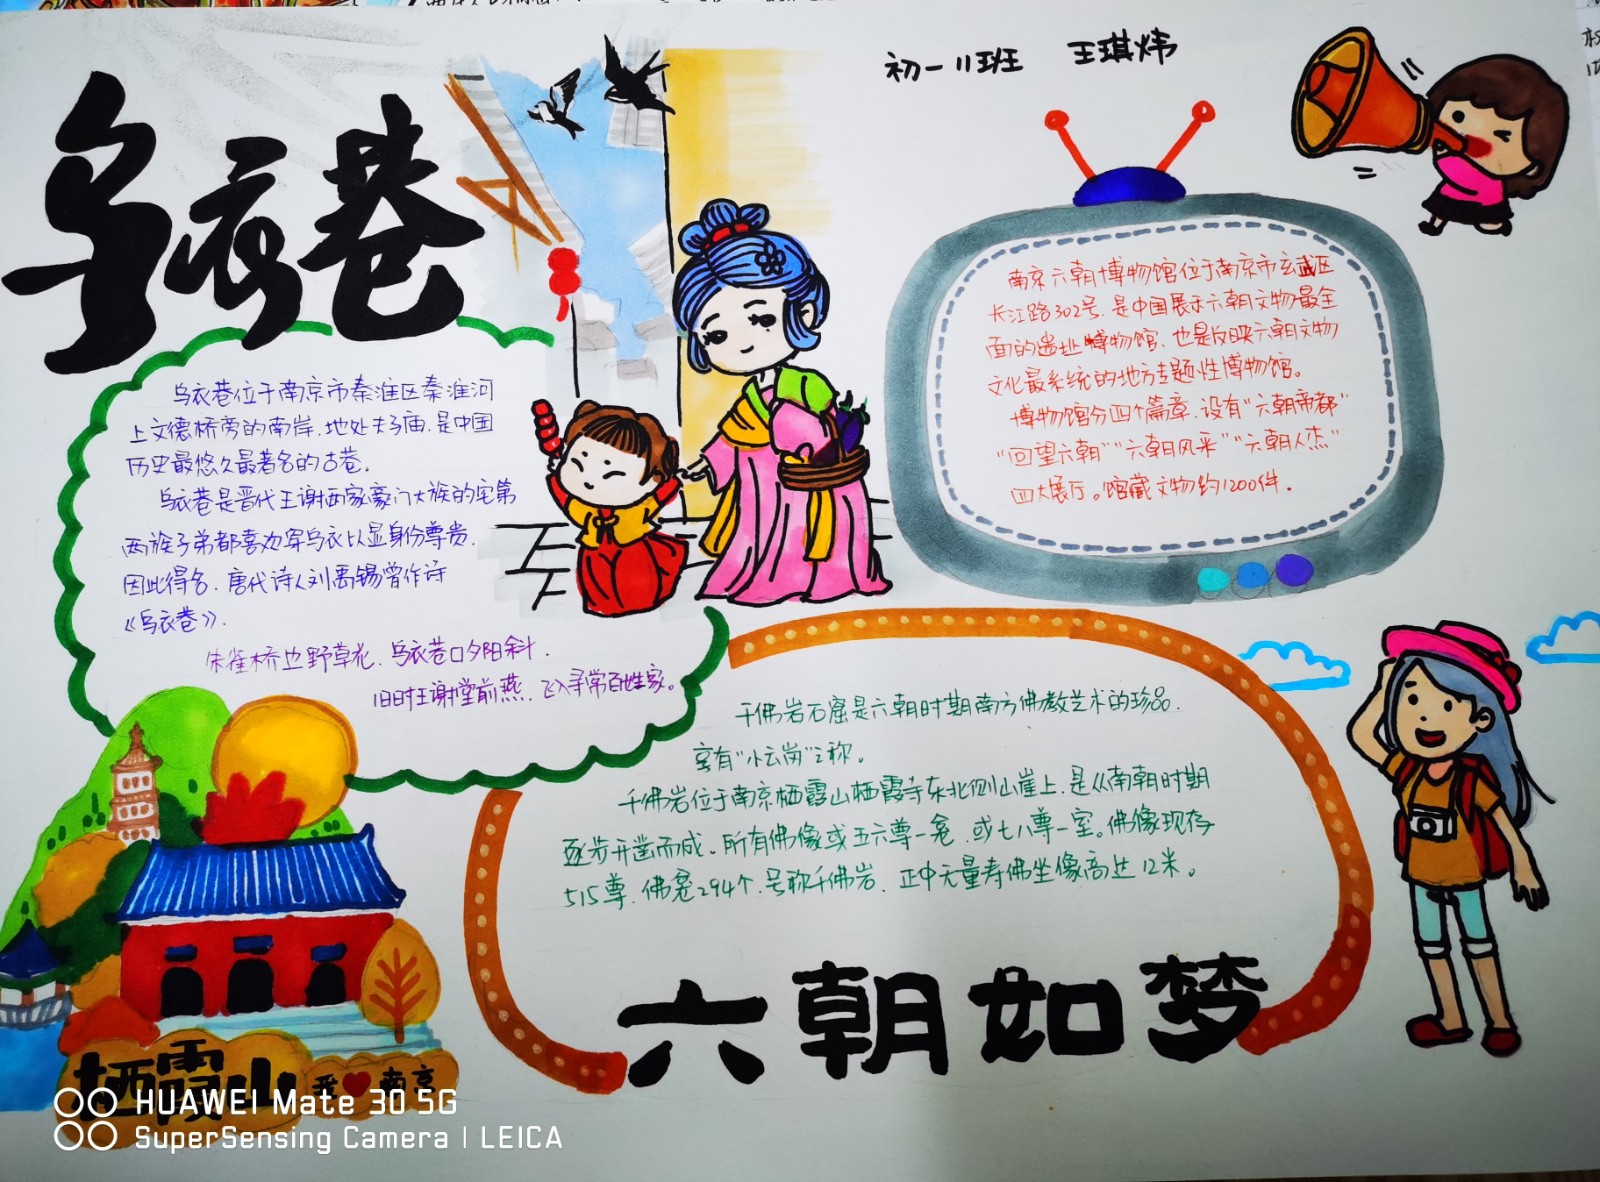 初一11班 王琪炜
乌衣巷
乌衣巷位于南京市秦淮区秦淮河
上文德桥旁的南岸.地处夫子庙.是中国
历史最悠久最著名的古巷.
乌衣巷是晋代王谢两家豪门大族的宅第
两族子弟都喜欢穿乌衣以显身份尊贵.
因此得名.唐代诗人刘禹锡曾作诗
《乌衣巷》.
朱雀桥边野草花.乌衣巷口夕阳斜.
旧时王谢堂前燕.飞入寻常百姓家。
南京六朝博物馆位于南京市玄武区
长江路302号.是中国展示六朝文物最全
面的遗址博物馆、也是反映六朝文物
文化最系统的地方专题性博物馆。
博物馆分四个篇章.设有"六朝帝都"
"回望六朝""六朝风采""六朝人杰"
四大展厅。馆藏文物约1200件.
千佛岩石窟是六朝时期南方佛教艺术的珍品.
享有"小云岗"之称。
千佛岩位于南京栖霞山栖霞寺东北侧山崖上.是从南朝时期
逐步开凿而成。所有佛像或五六尊一龛.或七八尊一室。佛像现存
515尊.佛龛294个.号称千佛岩.正中无量寿佛坐像高达12米。
六朝如梦
栖霞山 我❤南京
HUAWEI Mate 30 5G
SuperSensing Camera | LEICA